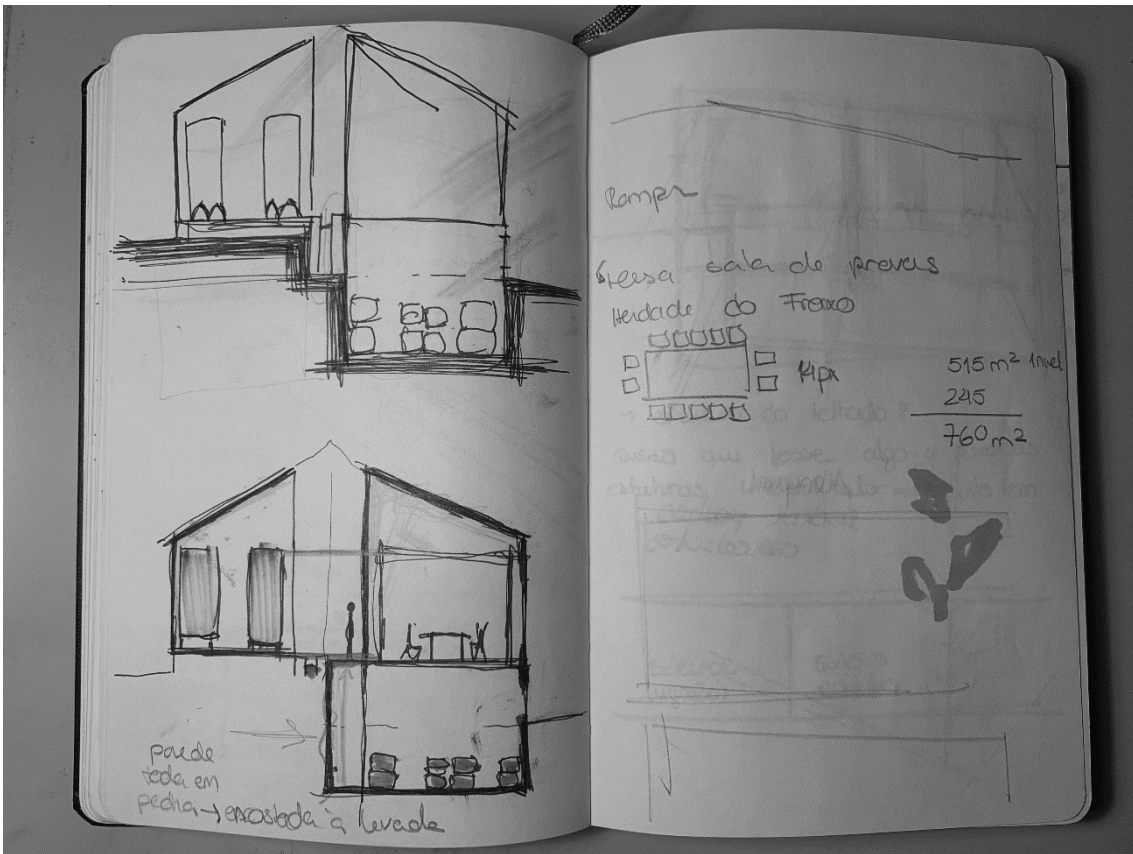 parede
toda em
pedra → encostada à levada
Rampa
mesa sala de provas
Herdade do Freixo
14px
515 m² 1 nível
245
760 m²